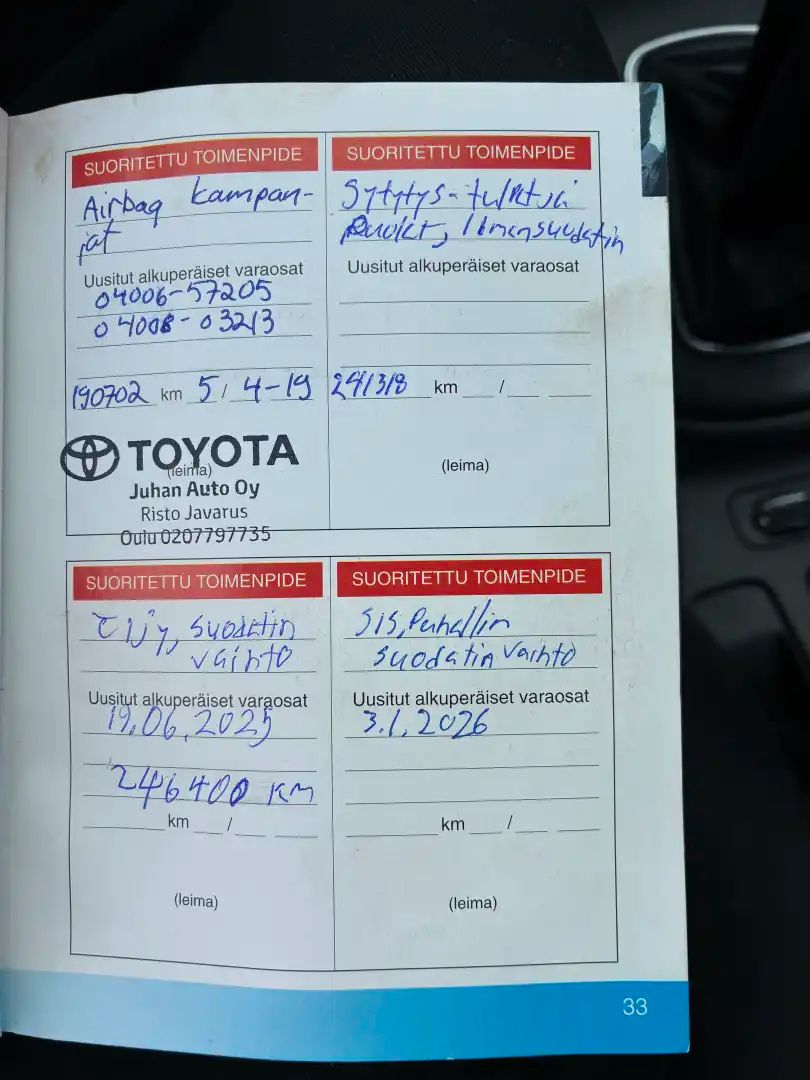 SUORITETTU TOIMENPIDE
Airbag kampan-
jat
Uusitut alkuperäiset varaosat
04006-57205
04008-03213
190702 km 5 / 4-19
TOYOTA
(leima)
Juhan Auto Oy
Risto Javarus
Oulu 0207797735
SUORITETTU TOIMENPIDE
Sytytys-tulpat ja
Puolat, Ilmansuodatin
Uusitut alkuperäiset varaosat
241318 km /
(leima)
SUORITETTU TOIMENPIDE
Öljy, suodatin
vaihto
Uusitut alkuperäiset varaosat
19.06.2025
246400 KM
km /
(leima)
SUORITETTU TOIMENPIDE
SIS, Puhallin
suodatin vaihto
Uusitut alkuperäiset varaosat
3.1.2026
km /
(leima)
33